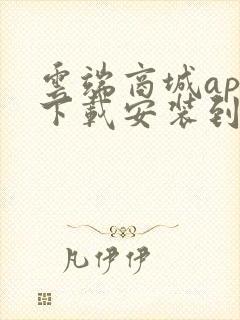 雲端商城ap
下載安装到
凡伊伊